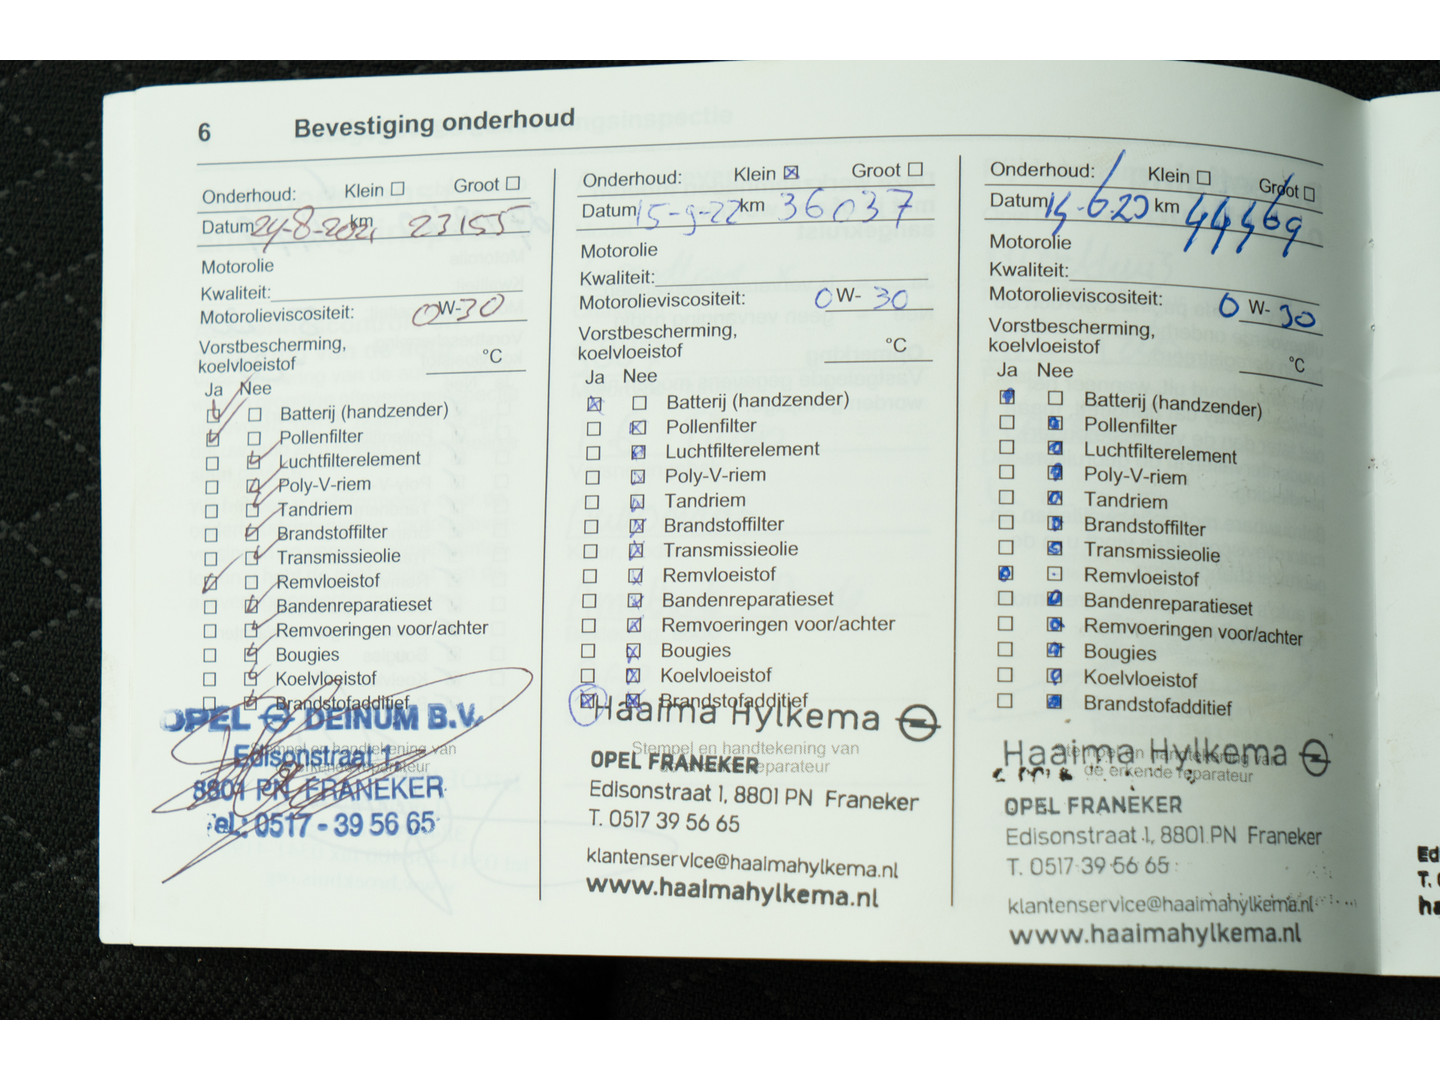 6 Bevestiging onderhoud
Onderhoud: Klein Groot
Datum 24-8-2021 km 23155
Motorolie
Kwaliteit:
Motorolieviscositeit: 0W-30
Vorstbescherming,
koelvloeistof °C
Ja Nee
Batterij (handzender)
Pollenfilter
Luchtfilterelement
Poly-V-riem
Tandriem
Brandstoffilter
Transmissieolie
Remvloeistof
Bandenreparatieset
Remvoeringen voor/achter
Bougies
Koelvloeistof
Brandstofadditief
OPEL DEINUM B.V.
Stempel en handtekening van
Edisonstraat 1,
8801 PN FRANEKER
Tel.: 0517 - 39 56 65
Onderhoud: Klein Groot
Datum 15-9-22 km 36037
Motorolie
Kwaliteit:
Motorolieviscositeit: 0W-30
Vorstbescherming,
koelvloeistof °C
Ja Nee
Batterij (handzender)
Pollenfilter
Luchtfilterelement
Poly-V-riem
Tandriem
Brandstoffilter
Transmissieolie
Remvloeistof
Bandenreparatieset
Remvoeringen voor/achter
Bougies
Koelvloeistof
Brandstofadditief
Haaima Hylkema
Stempel en handtekening van
OPEL FRANEKER
Edisonstraat 1, 8801 PN Franeker
T. 0517 39 56 65
klantenservice@haaimahylkema.nl
www.haaimahylkema.nl
Onderhoud: Klein Groot
Datum km
Motorolie
Kwaliteit:
Motorolieviscositeit: 0W-30
Vorstbescherming,
koelvloeistof °C
Ja Nee
Batterij (handzender)
Pollenfilter
Luchtfilterelement
Poly-V-riem
Tandriem
Brandstoffilter
Transmissieolie
Remvloeistof
Bandenreparatieset
Remvoeringen voor/achter
Bougies
Koelvloeistof
Brandstofadditief
Haaima Hylkema
Stempel en handtekening van
de erkende reparateur
OPEL FRANEKER
Edisonstraat 1, 8801 PN Franeker
T. 0517 39 56 65
klantenservice@haaimahylkema.nl
www.haaimahylkema.nl
Ed
T.
ha